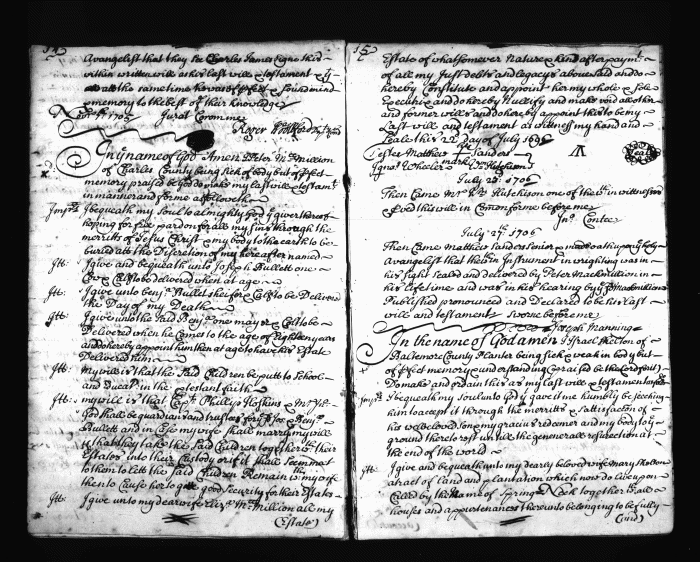 Avangelist that they see Charles James signe this
within written will as his last will & testament &
at the same time he was of pfect & sound mind
memory to the best of their Knowledge
1705 Jurat Coram me
Roger
In ye name of God Amen Peter Mc Million
of Charles County being sick of body but of pfect
memory praised be god do make my last will & testamt
in manner and forme as followeth
Impris I bequeath my soul to almighty God ye giver thereof
hoping for free pardon for all my sins through the
merritts of Jesus Christ my body to the earth to be
buried att the Discretion of my hereafter named
Itt: I give and bequeath unto Joseph Bullett one
Cow & Calf to be delivered when at age
Itt: I give unto Benja Bullet Heifer & Calf to be Deliverd
the Day of my Death
Itt: I give unto the said Benja one mare & Colt to be
Delivered when he Comes to the age of Eighteen years
and do hereby appoint him then at age to have his Estate
Delivered him
Itt: My will is that the said Children be putt to School
and Educat in the protestant faith
Itt: my will is that Capt Phillip Hoskins & Mr
God shall be guardian and trustees for ye Jos & Benja
Bullett and in Case my wife shall marry my will
is that they take the said Children together wth their
Estates into their Custody or if it shall seem meet
to them to lett the said Children Remain wth my wife
then to Cause her to give good security for their Estates
Itt: I give unto my dear wife Eliza Mc Million all my
(Estate)
15
Estate of whatsoever Nature & kind after paymt
of all my Just debts and legacys abovesaid and do
hereby Constitute and appoint her my whole & sole
Executrix and do hereby Nullify and make void all other
and former wills and do hereby appoint this to be my
Last will and testament as witness my hand and
Seale this 22 Day of July
Testes Matthew Sanders
Ignas Wheeler mark Hutchison
Seal
July 25: 1706
Then Came Mr Hutchison one of the wthin witnesses
& pved this will in Common forme before me
Jno Contee
July 27: 1706
Then Came Matthew Sanders Senior & made oath upon ye holy
Avangelist that the wthin Instrument in wrighting was in
his sight sealed and delivered by Peter Mackmillion in
his lifetime and was in his hearing by ye sd Mackmillion
Published pronounced and Declared to be his last
will and testament Sworne before me
Joseph Manning
In the name of God amen Israel Skelton of
Baltemore County Planter being sick & weak in body but
of pfect memory & understanding (praised be the Lord for it)
Do make and ordain this as my last will & testament
Impris I bequeath my soul unto God ye gave it me humbly beseeching
him to accept it through the merritts & satisfaction of
his well beloved son my gracious redeemer and my body to ye
ground there to rest untill the generall resurrection at
the end of the world
Itt: I give and bequeath unto my dearly beloved wife Mary Skelton
a tract of land and plantation which now do live upon
Called by the Name of Spring Neck together wth all
houses and appurtenances thereunto belonging to be fully
(and)